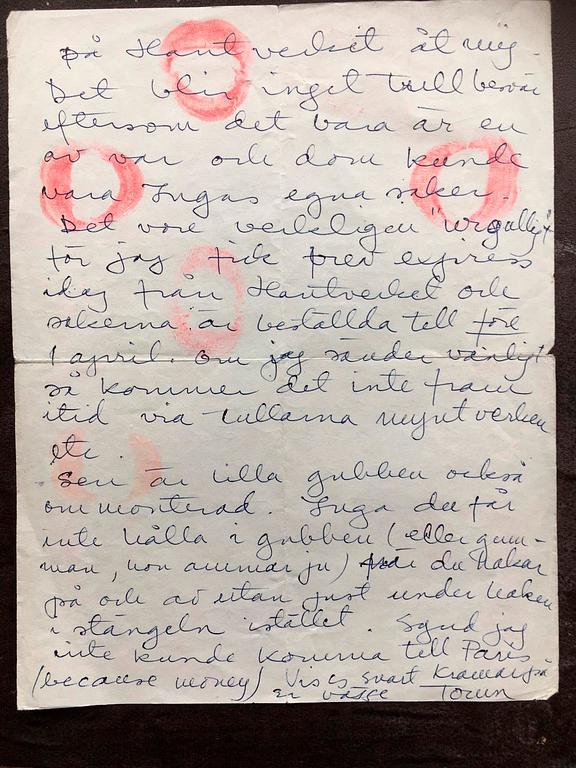 på Hantverket åt mig.
Det blir inget tullbesvär
eftersom det bara är en
av var och dom kunde
vara Ingas egna saker.
Det vore verkligen "urgulligt"
för jag fick brev express
idag från Hantverket och
sakerna är beställda till före
1 april. Om jag sänder vanligt
så kommer det inte fram
i tid via tullarna myntverken
etc.
Sen är lilla gubben också
ommonterad. Inga du får
inte hålla i gubben (eller gum-
man, hon ammar ju) när du hakar
på och av utan just under haken
i stängeln istället. Synd jag
inte kunde komma till Paris
(because money) Vi ses snart Kramar på
er bägge Torun